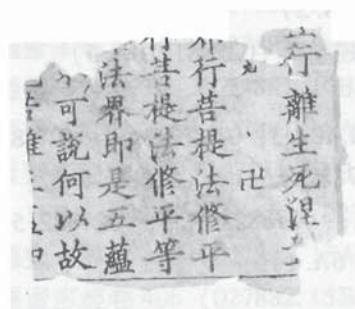 行離生死涅
九 卍
行菩提法修平
行菩提法修平等
法界即是五蘊
可說何以故